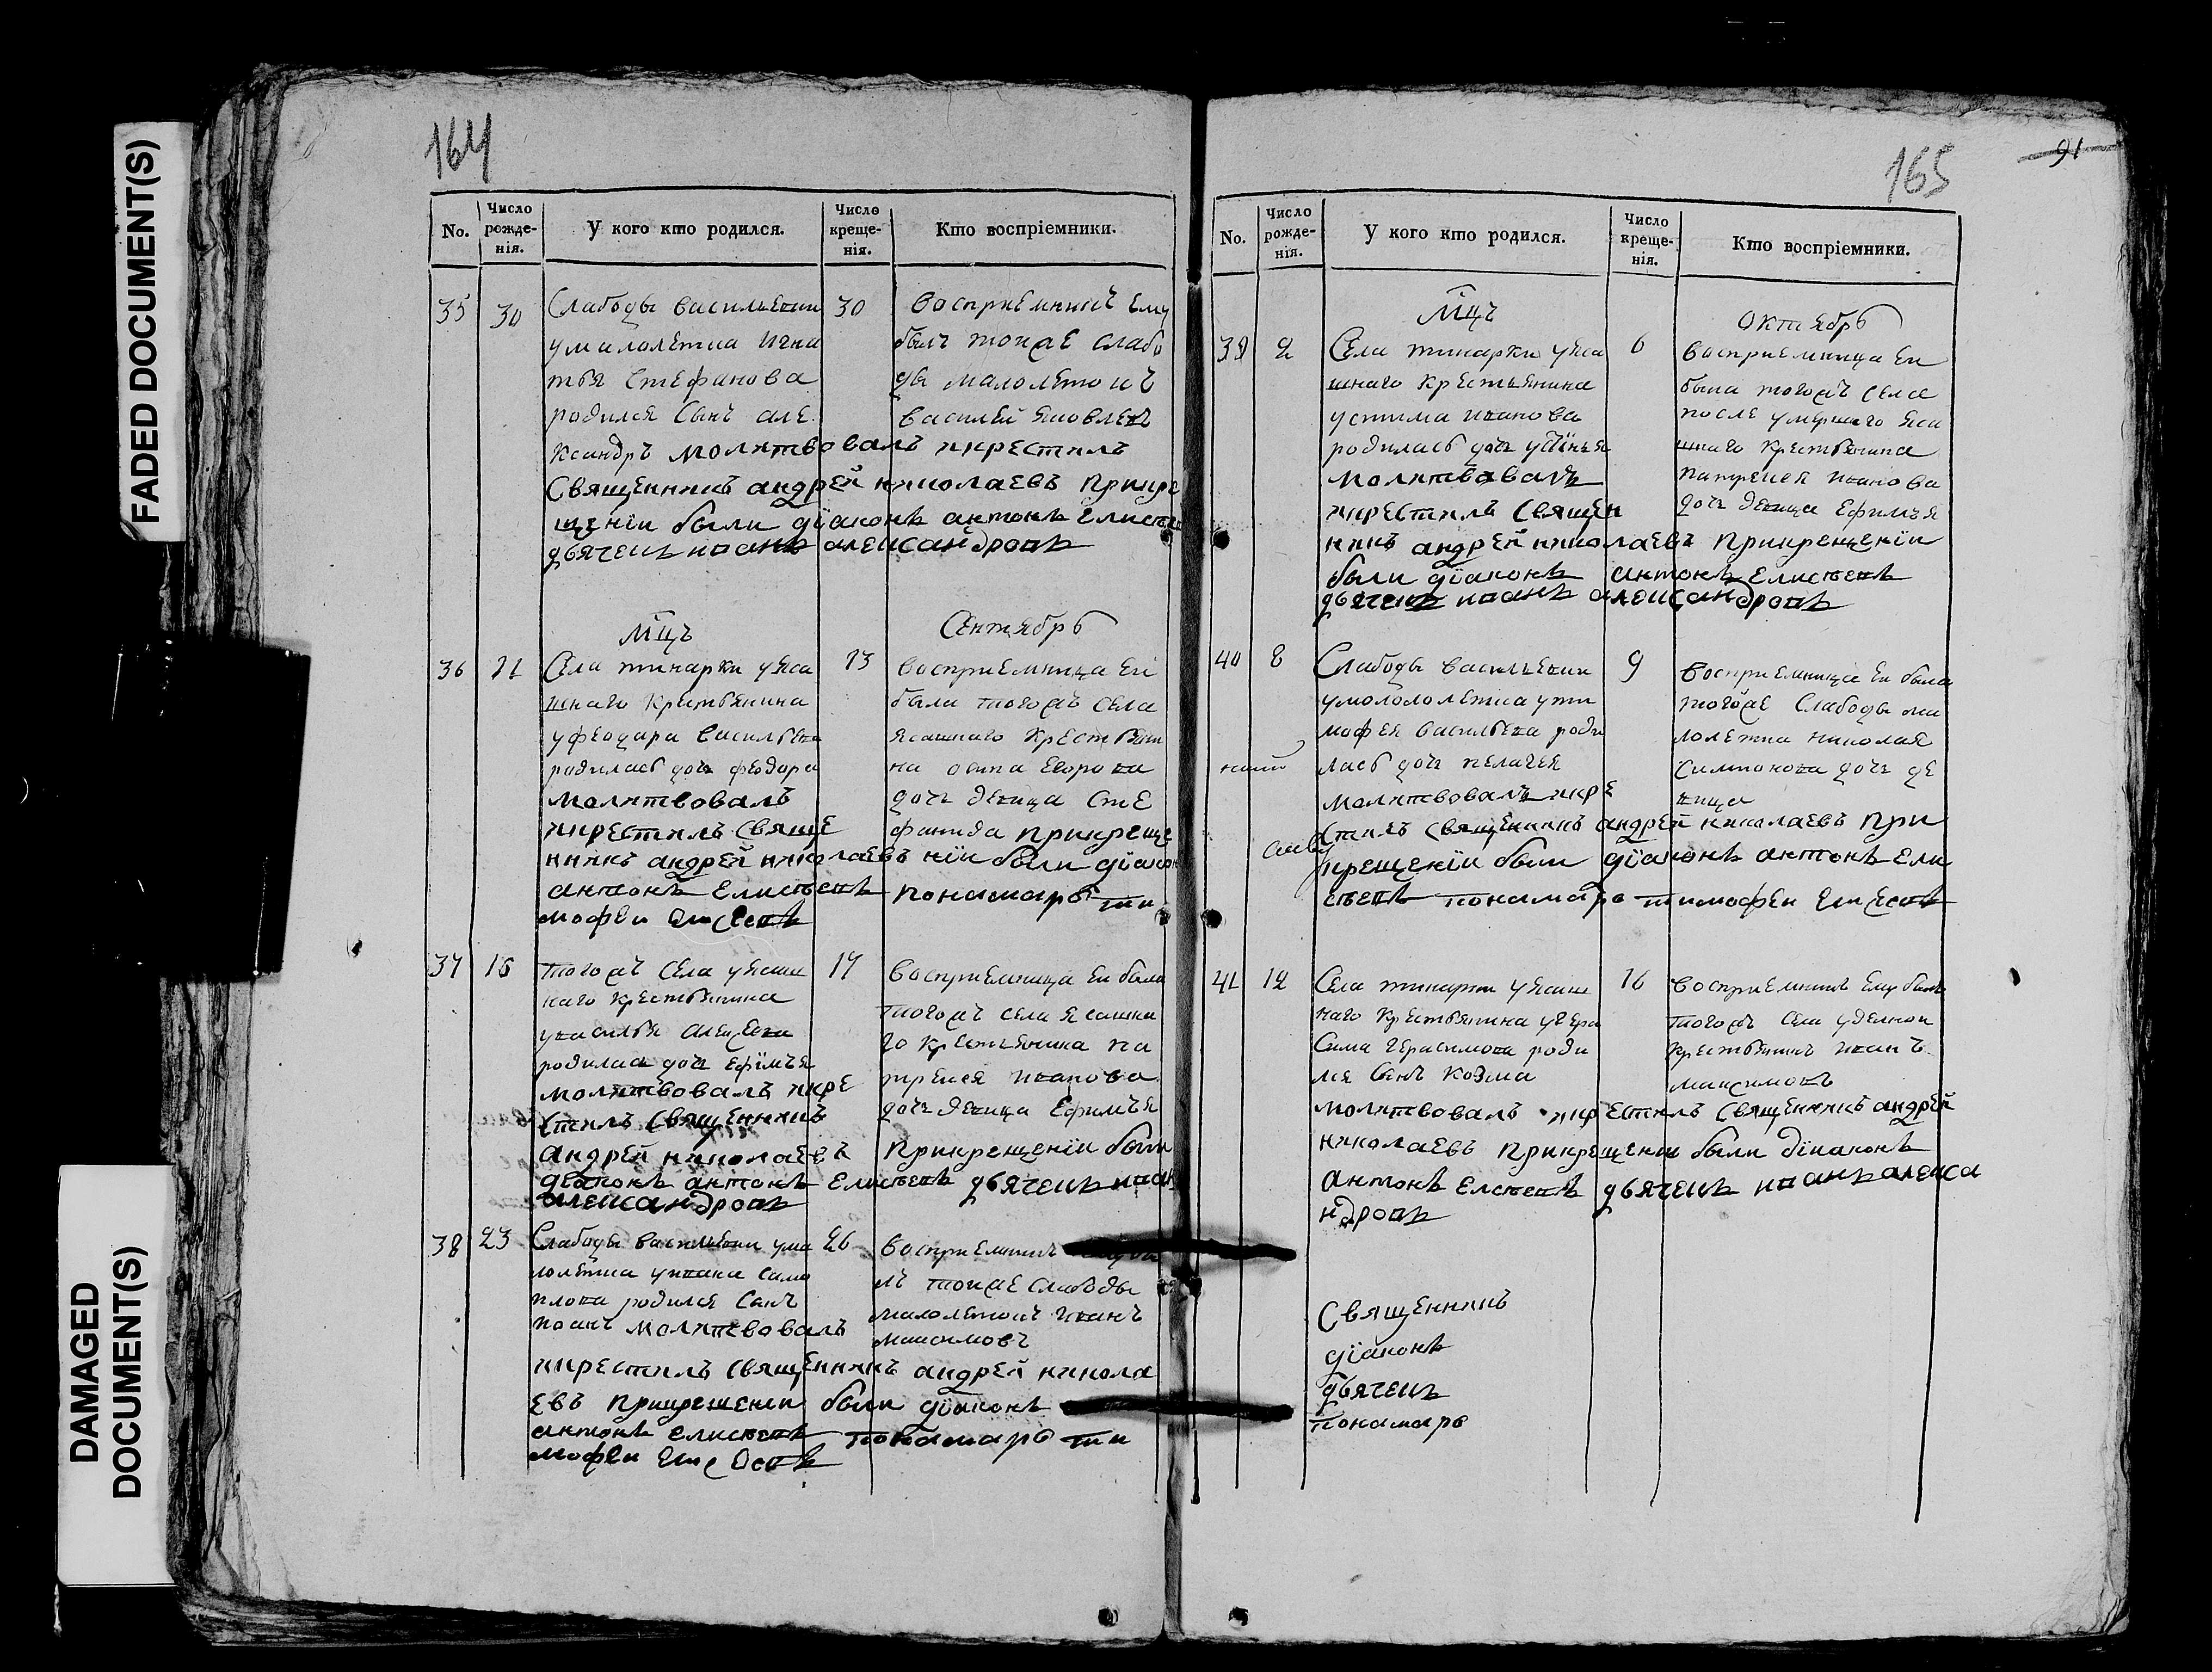 FADED DOCUMENT(S)
DAMAGED
DOCUMENT(S)
164
No.
Число рожде-нія.
У кого кто родился.
Число креще-нія.
Кто воспріемники.
35 30
Слабоды василъевки
у малолетка Игна
тья Стефанова
родился Сынъ але
ксандръ молитвовалъ икрестилъ
Священникъ андрей николаевъ прикре
щеніи были діаконъ антонъ Елисеевъ
дьячекъ иванъ александровъ
30
восприемникъ ему
былъ тоиже слабо
ды малолетокъ
василей яковлевъ
Мцъ Сентябрь
36 11
Села тинарки уяса
шнаго Крестьянина
уфеодара василъева
родиласъ дочь феодора
молитвовалъ
икрестилъ Свяще
нникъ андрей николаевъ
антонъ Елисеевъ понамарь ти
мофеи Елисеевъ
13
восприемница Еі
была тогожъ села
ясашнаго Крестьяни
на осипа Егорова
дочь девица Сте
фанида прикреще
ніи были діаконъ
37 16
тогожъ Села уясаш
наго крестьянина
увасилья алексеева
родилась дочь Ефимья
молитвовалъ икре
стилъ Священникъ
андрей николаевъ
діаконъ антонъ Елисеевъ дьячекъ иванъ
александровъ
17
восприемница Еи была
тогожъ села ясашна
го крестьянина па
трекея иванова
дочь девица Ефимья
прикрещеніи были
38 23
Слабоды василъевки ума
лолетка уивана само
илова родился Сынъ
иоанъ молитвовалъ
икрестилъ священникъ андрей никола
евъ прикрещеніи были діаконъ
антонъ елисеевъ понамарь ти
мофеи Елисеевъ
26
восприемникъ
лъ тоиже слабоды
малолетокъ иванъ
максимовъ
165
91
No.
Число рожде-нія.
У кого кто родился.
Число креще-нія.
Кто воспріемники.
Мцъ Октябрь
39 2
Села тинарки уяса
шнаго Крестьянина
устима иванова
родиласъ дочь устінья
молитвавалъ
икрестилъ Священ
никъ андрей николаевъ прикрещеніи
были діаконъ антонъ Елисеевъ
дьячекъ иванъ александровъ
6
восприемница Еи
была тогожъ села
после умершаго яса
шнаго крестьянина
патрекея иванова
дочь девица Ефимья
40 8
Слабоды василъевки
умолололетка ути
мофея василъева роди
лась дочь пелагея
молитвовалъ икре
стилъ священникъ андрей николаевъ при
крещеніи были діаконъ антонъ Ели
сеевъ понамарь тимофеи Елисеевъ
9
восприемница Еи была
тоиже Слабоды ма
лолетка николая
Симионова дочь де
вица
41 12
Села тинарки уясаш
наго Крестьянина угера
сима герасимова роди
лся Сынъ козма
молитвовалъ икрестилъ священникъ андрей
николаевъ прикрещеніи были діиаконъ
антонъ елсеевъ дьячекъ иванъ алекса
ндровъ
16
восприемникъ Ему былъ
тогожъ села уделнои
крестьянинъ иванъ
максимовъ
Священникъ
діаконъ
дьячекъ
понамарь